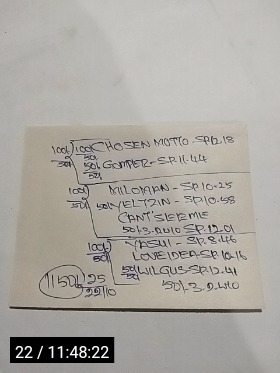 100/ 100/ CHOSEN MOTTO - SP.12.18
50/ 50/
50/ GOMPER - SP.11.44
50/
100/ MILOMAN - SP.10-25
50/ 50/ YELTZIN - SP.10-58
CANT SEE ME
50/-3.20/10 SP.12.01
100/ YASHI - SP.8.46
50/ LOVE IDEA - SP.10-16
50/ WILGUS - SP.12.41
50/
1150/ 25 50/-3.20/10
22/10
22 / 11:48:22